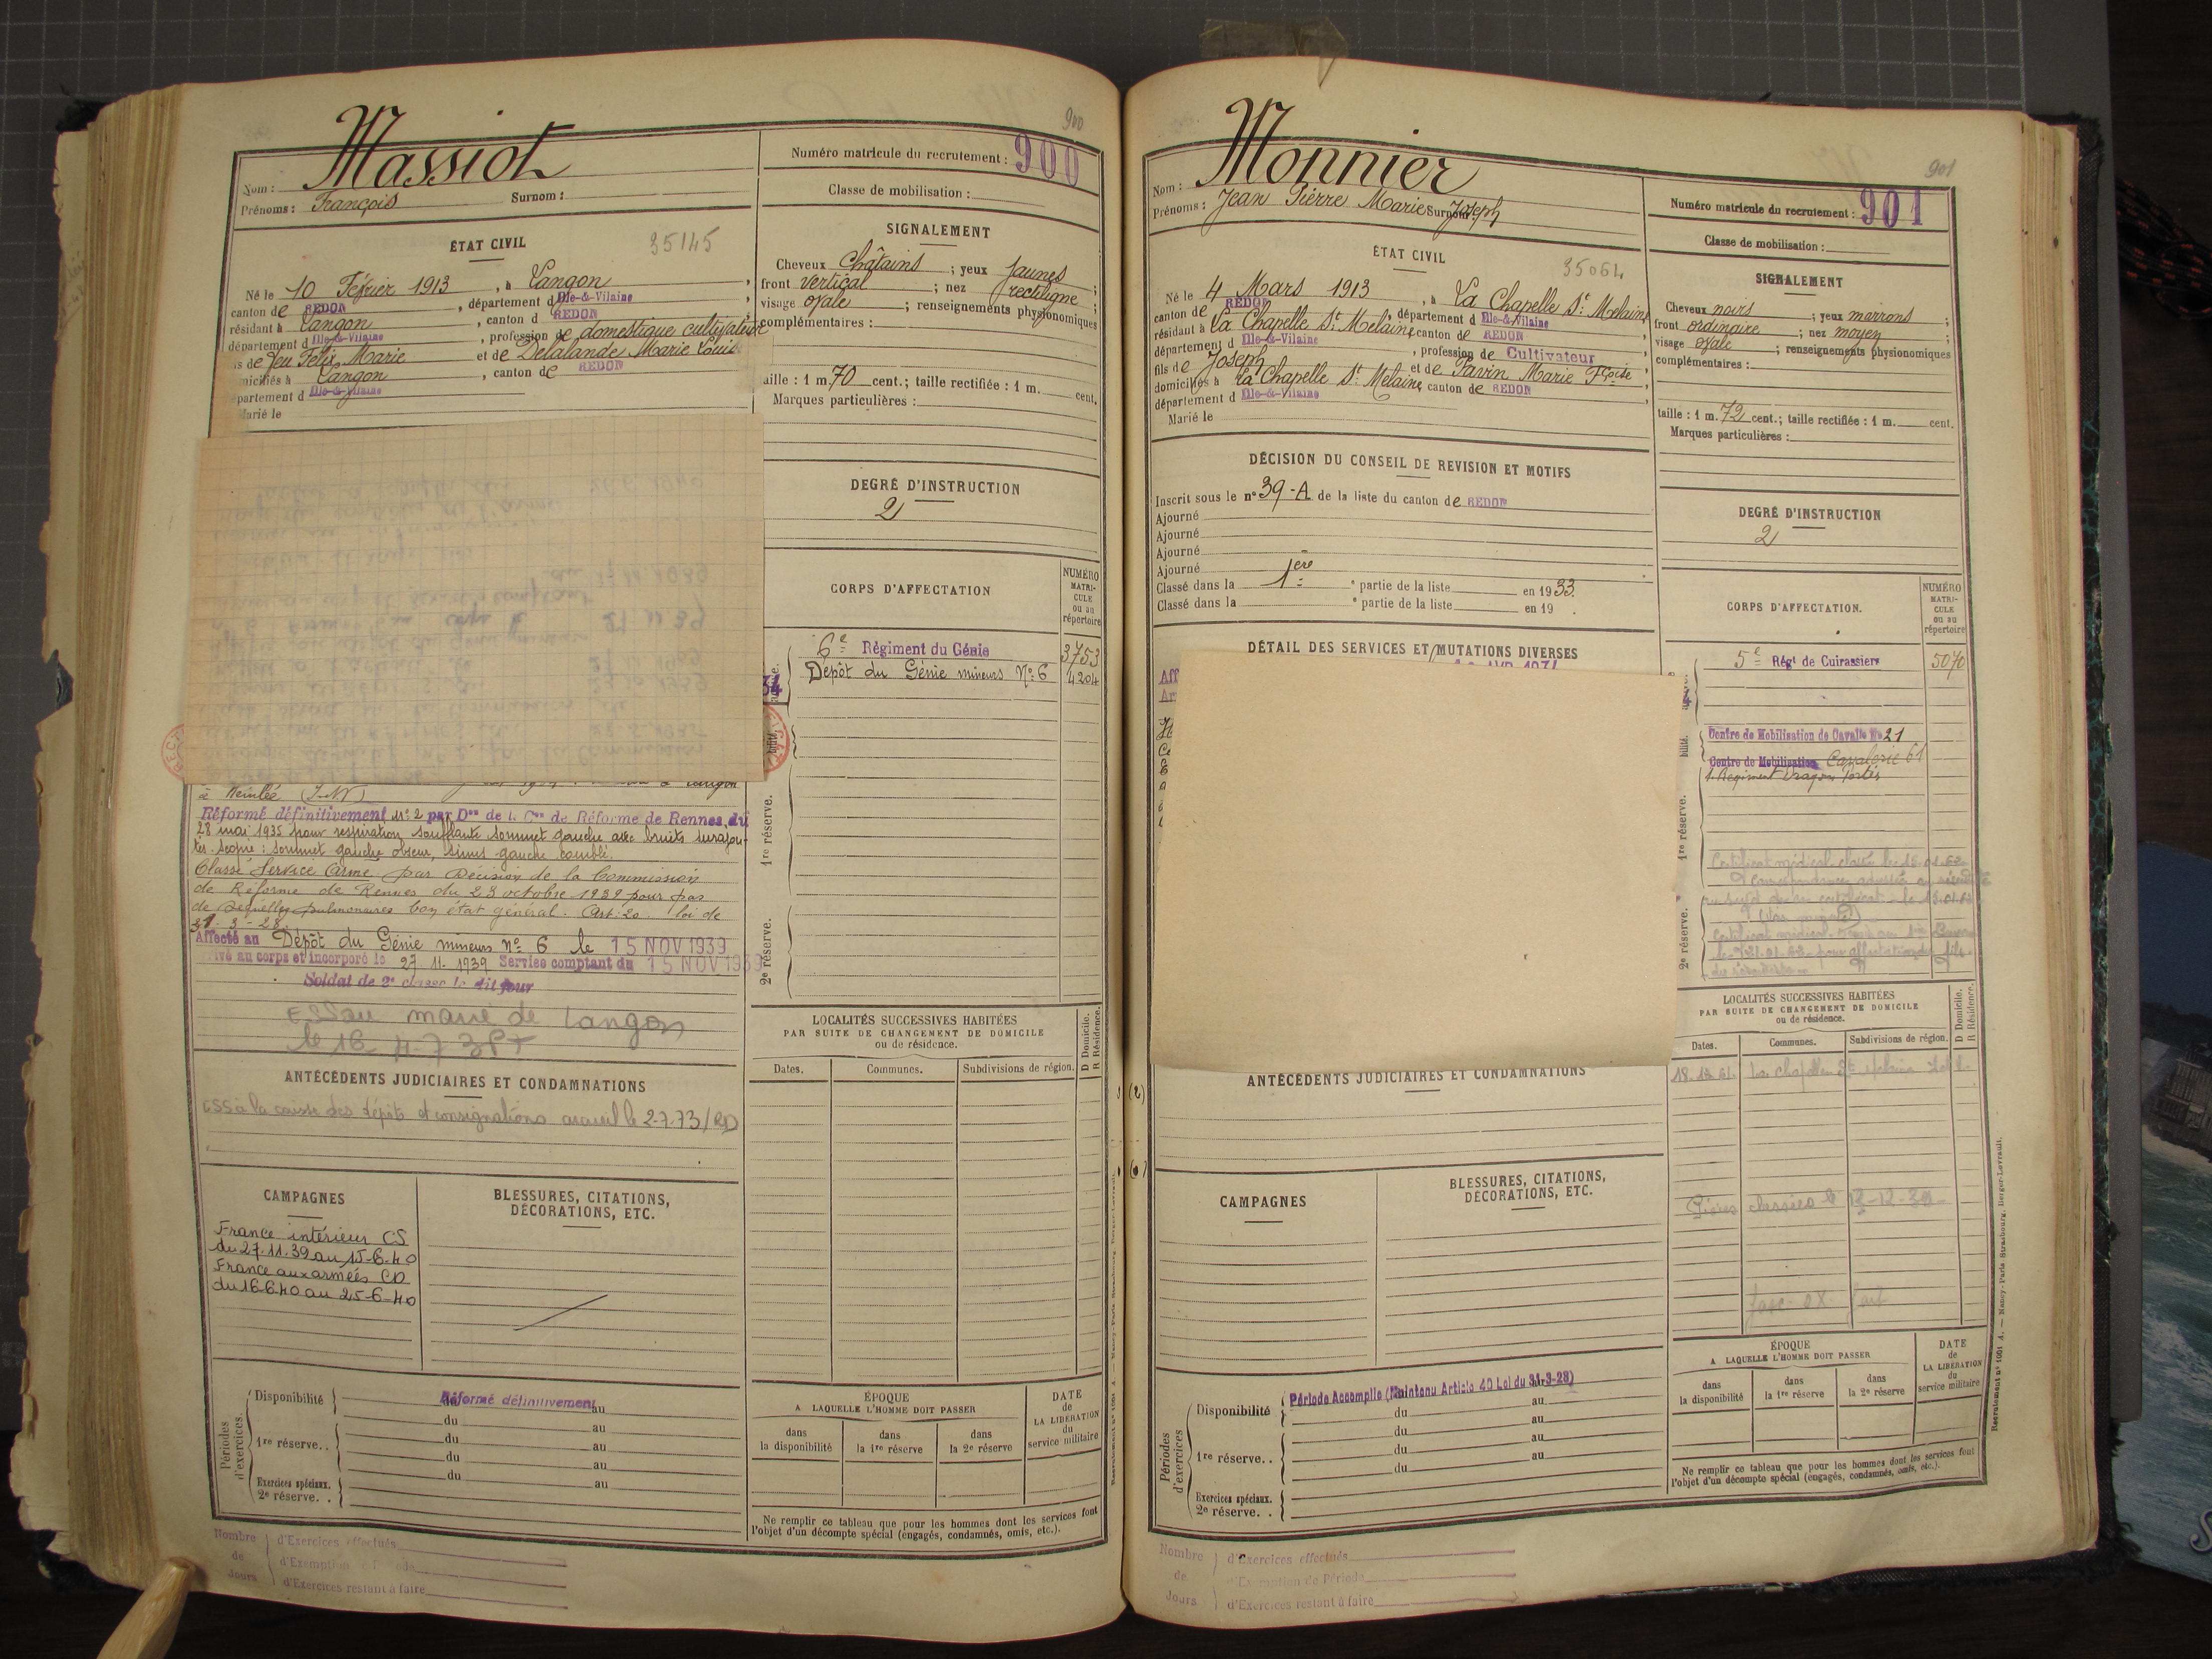 900
Massiot
Nom :
Prénoms : François Surnom :
Numéro matricule du recrutement : 900
Classe de mobilisation :
ÉTAT CIVIL
35145
Né le 10 Février 1913, à Langon,
canton de REDON, département d Ille-&-Vilaine
résidant à Langon, canton d REDON
département d Ille-&-Vilaine, profession de domestique cultivateur
s de feu Felix Marie et de Delalande Marie Louise
miciliés à Langon, canton de REDON
partement d Ille-&-Vilaine
arié le
SIGNALEMENT
Cheveux Châtains ; yeux jaunes ;
front vertical ; nez rectiligne ;
visage ovale ; renseignements physionomiques
complémentaires :
aille : 1 m. 70 cent.; taille rectifiée : 1 m. cent.
Marques particulières :
DEGRÉ D'INSTRUCTION
2
CORPS D'AFFECTATION
NUMÉRO
MATRI-
CULE
ou au
répertoire
6e Régiment du Génie 3753
Dépôt du Génie mineurs No 6 4204
1re réserve.
2e réserve.
à Neuillé (I.-V.)
Réformé définitivement n° 2 par Don de la Con de Réforme de Rennes du
28 mai 1935 pour respiration soufflante sommet gauche avec bruits surajou-
tés. scopie : sommet gauche obscur, sinus gauche comblé.
Classé Service Armé par Décision de la Commission
de Réforme de Rennes du 23 octobre 1939 pour pas
de séquelles pulmonaires bon état général. Art. 20 loi de
31-3-28.
Affecté au Dépôt du Génie mineurs No 6 le 15 NOV 1939
ivé au corps et incorporé le 27-11-1939 Service comptant du 15 NOV 1939
Soldat de 2e classe le dit jour
ESS au maire de Langon
ANTÉCÉDENTS JUDICIAIRES ET CONDAMNATIONS
ESS à la caisse des dépôts et consignations arcueil le 2-7-73/RD
CAMPAGNES
France intérieur CS
du 27.11.39 au 15-6-40
France aux armées CD
du 16-6-40 au 25-6-40
BLESSURES, CITATIONS,
DÉCORATIONS, ETC.
LOCALITÉS SUCCESSIVES HABITÉES
PAR SUITE DE CHANGEMENT DE DOMICILE
ou de résidence.
D Domicile.
R Résidence.
Dates. Communes. Subdivisions de région.
Périodes
d'exercices.
Disponibilité Réformé définitivement au
du au
1re réserve.. du au
du au
du au
Exercices spéciaux.
2e réserve. .
ÉPOQUE
A LAQUELLE L'HOMME DOIT PASSER
dans
la disponibilité
dans
la 1re réserve
dans
la 2e réserve
DATE
de
LA LIBÉRATION
du
service militaire
Ne remplir ce tableau que pour les hommes dont les services font
l'objet d'un décompte spécial (engagés, condamnés, omis, etc.).
Nombre
de
Jours
d'Exercices effectués
d'Exercices restant à faire
901
Monnier
Nom :
Prénoms : Jean Pierre Marie Surnom : Joseph
Numéro matricule du recrutement : 901
Classe de mobilisation :
ÉTAT CIVIL
35064
Né le 4 Mars 1913, à La Chapelle St Melaine
canton de REDON, département d Ille-&-Vilaine
résidant à La Chapelle St Melaine, canton de REDON
département d Ille-&-Vilaine, profession de Cultivateur
fils de Joseph et de Pavin Marie Fçoise
domiciliés à La Chapelle St Melaine, canton de REDON
département d Ille-&-Vilaine
Marié le
SIGNALEMENT
Cheveux noirs ; yeux marrons ;
front ordinaire ; nez moyen ;
visage ovale ; renseignements physionomiques
complémentaires :
taille : 1 m. 72 cent.; taille rectifiée : 1 m. cent.
Marques particulières :
DÉCISION DU CONSEIL DE REVISION ET MOTIFS
Inscrit sous le n° 39-A de la liste du canton de REDON
Ajourné
Ajourné
Ajourné
Ajourné
Classé dans la 1ère partie de la liste en 1933.
Classé dans la e partie de la liste en 19 .
DEGRÉ D'INSTRUCTION
2
DÉTAIL DES SERVICES ET MUTATIONS DIVERSES
CORPS D'AFFECTATION.
NUMÉRO
MATRI-
CULE
ou au
répertoire
5e Régt de Cuirassiers 5070
Centre de Mobilisation de Cavalle No 21
Centre de Mobilisation Cavalerie 61
1. Régiment Dragons Portés
1re réserve.
2e réserve.
LOCALITÉS SUCCESSIVES HABITÉES
PAR SUITE DE CHANGEMENT DE DOMICILE
ou de résidence.
D Domicile.
R Résidence.
Dates. Communes. Subdivisions de région.
18.12.61. La Chapelle Ste Melaine
Pièces classées le 12-12-39-
ANTÉCÉDENTS JUDICIAIRES ET CONDAMNATIONS
CAMPAGNES
BLESSURES, CITATIONS,
DÉCORATIONS, ETC.
Périodes
d'exercices
Disponibilité Période Accomplie (Maintenu Article 40 Loi du 31-3-28)
du au
du au
1re réserve. . du au
du au
Exercices spéciaux.
2e réserve. .
ÉPOQUE
A LAQUELLE L'HOMME DOIT PASSER
dans
la disponibilité
dans
la 1re réserve
dans
la 2e réserve
DATE
de
LA LIBÉRATION
du
service militaire
Ne remplir ce tableau que pour les hommes dont les services font
l'objet d'un décompte spécial (engagés, condamnés, omis, etc.).
Recrutement n° 1001 A. — Nancy-Paris-Strasbourg, Berger-Levrault.
Nombre
de
Jours
d'Exercices effectués
d'Exemption de Période
d'Exercices restant à faire